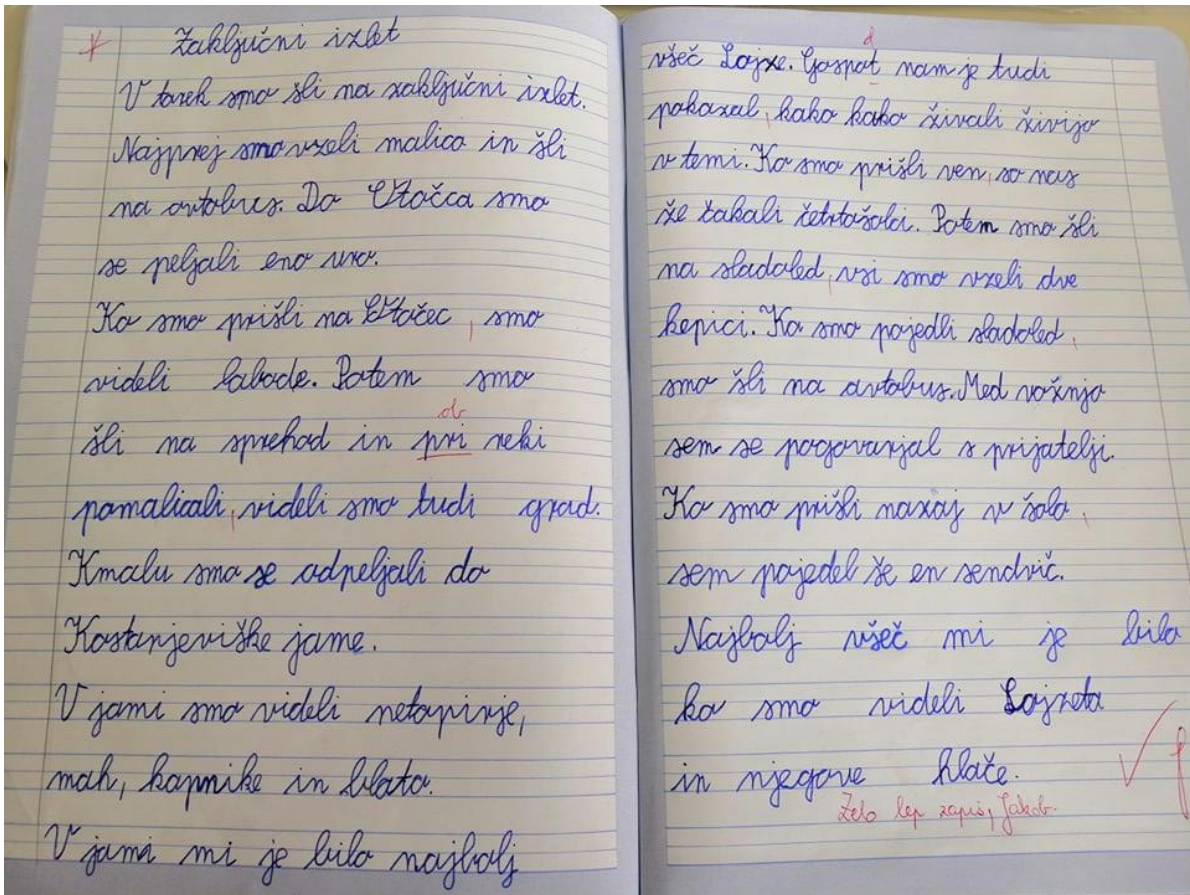 Zaključni izlet
V torek smo šli na zaključni izlet.
Najprej smo vzeli malico in šli
na avtobus. Do Otočca smo
se peljali eno uro.
Ko smo prišli na Otočec, smo
videli labode. Potem smo
ob
šli na sprehod in pri reki
pomalicali, videli smo tudi grad.
Kmalu smo se odpeljali do
Kostanjeviške jame.
V jami smo videli netopirje,
mah, kapnike in blato.
V jami mi je bilo najbolj
d
všeč Lojze. Gospot nam je tudi
pokazal, kako kako živali živijo
v temi. Ko smo prišli ven, so nas
že čakali četrtošolci. Potem smo šli
na sladoled, vsi smo vzeli dve
kepici. Ko smo pojedli sladoled,
smo šli na avtobus. Med vožnjo
sem se pogovarjal s prijatelji.
Ko smo prišli nazaj v šolo,
sem pojedel še en sendvič.
Najbolj všeč mi je bilo
ko smo videli Lojzeta
in njegove hlače.
Zelo lep zapis, Jakob.